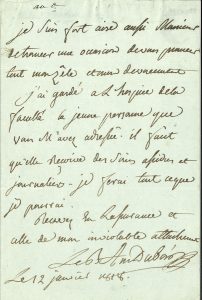 je suis fort aise aussi Monsieur
de trouver une occasion de vous prouver
tout mon zèle et mon devouement
j'ai gardé a l'hospice de la
faculté la jeune personne que
vous m'avez adressée. il faut
qu'elle recoive des soins assidus et
journaliers. je ferai tout ce que
je pourrai.
Recevez en l'assurance et
celle de mon inviolable attachement
Le Bon Ant Dubois
Le 12 janvier 1818